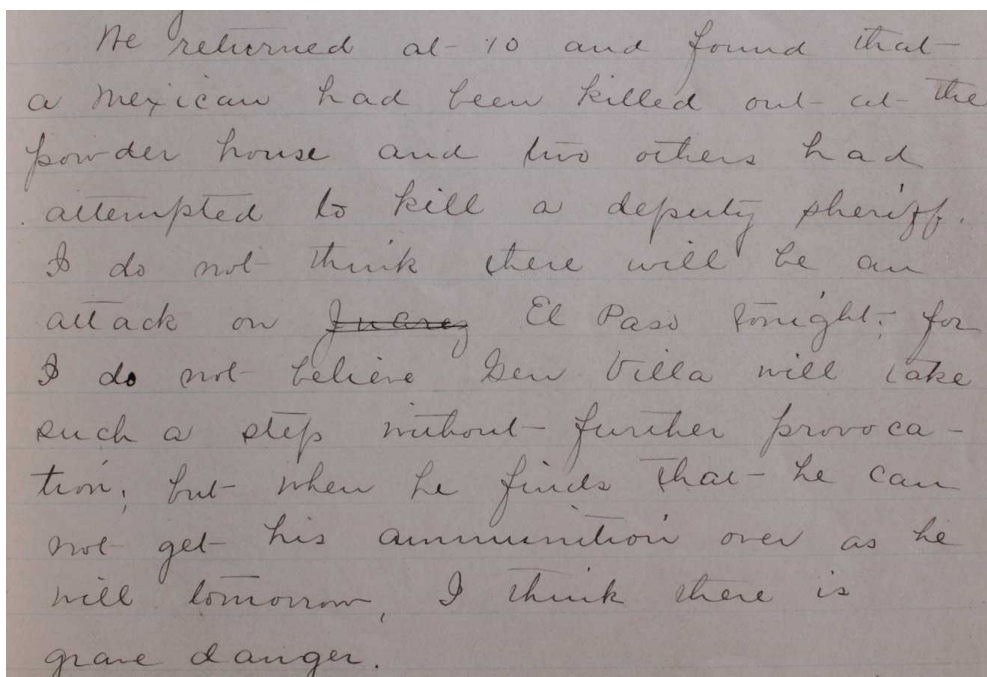 We returned at 10 and found that
a Mexican had been killed out at the
powder house and two others had
attempted to kill a deputy sheriff.
I do not think there will be an
attack on Juarez El Paso tonight, for
I do not believe Gen Villa will take
such a step without further provoca-
tion; but when he finds that he can
not get his ammunition over as he
will tomorrow, I think there is
grave danger.